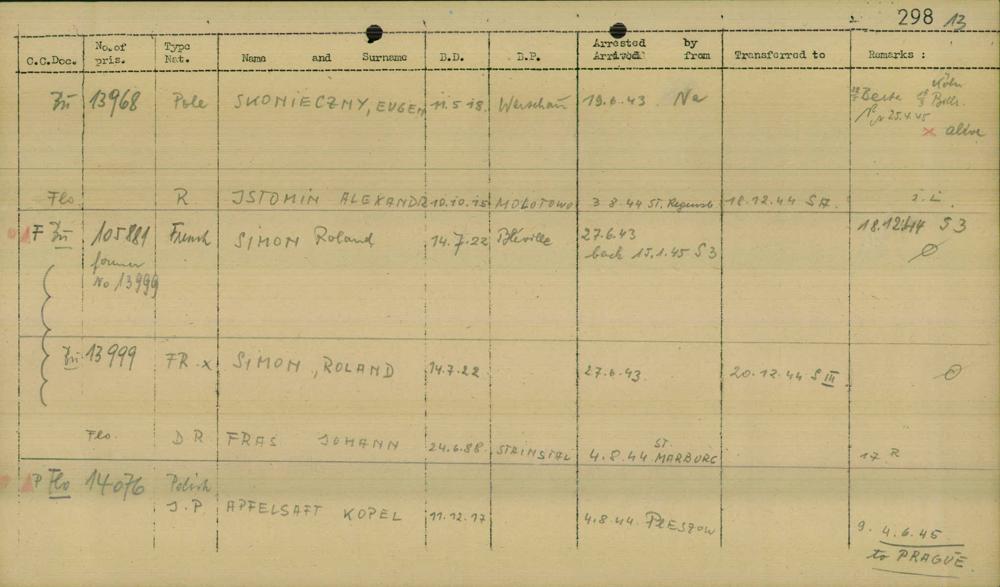 298 13
C.C.Doc. No. of pris. Type Nat. Name and Surname B.D. B.P. Arrested by Arrived from Transferred to Remarks :
Zü 13968 Pole SKONIECZNY, EUGEN 11.5.18. Warschau 19.6.43 Na
Köln
25.4.45
x alive
Flo R ISTOMIN ALEXANDR 10.10.15 MOLOTOWO 3.8.44 ST. Regensb 18.12.44 SA. i.L.
F Zü 105881 French SIMON Roland 14.7.22 Bléville 27.6.43 18.12.44 S3
former back 15.1.45 S3
No 13999
Zü 13999 FR. x SIMON, ROLAND 14.7.22 27.6.43. 20.12.44 S III
Flo. DR FRAS JOHANN 24.6.88 STAINSTAL 4.8.44 ST. MARBURG 17 R
P Flo 14076 Polish
J.P APFELSAFT KOPEL 11.12.17 4.8.44 PLESZOW 9. 4.6.45
to PRAGUE.